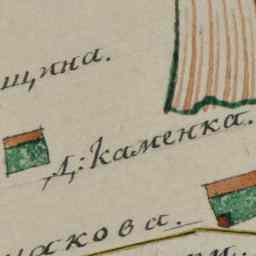 щина.
Д: Каменка.
акова.